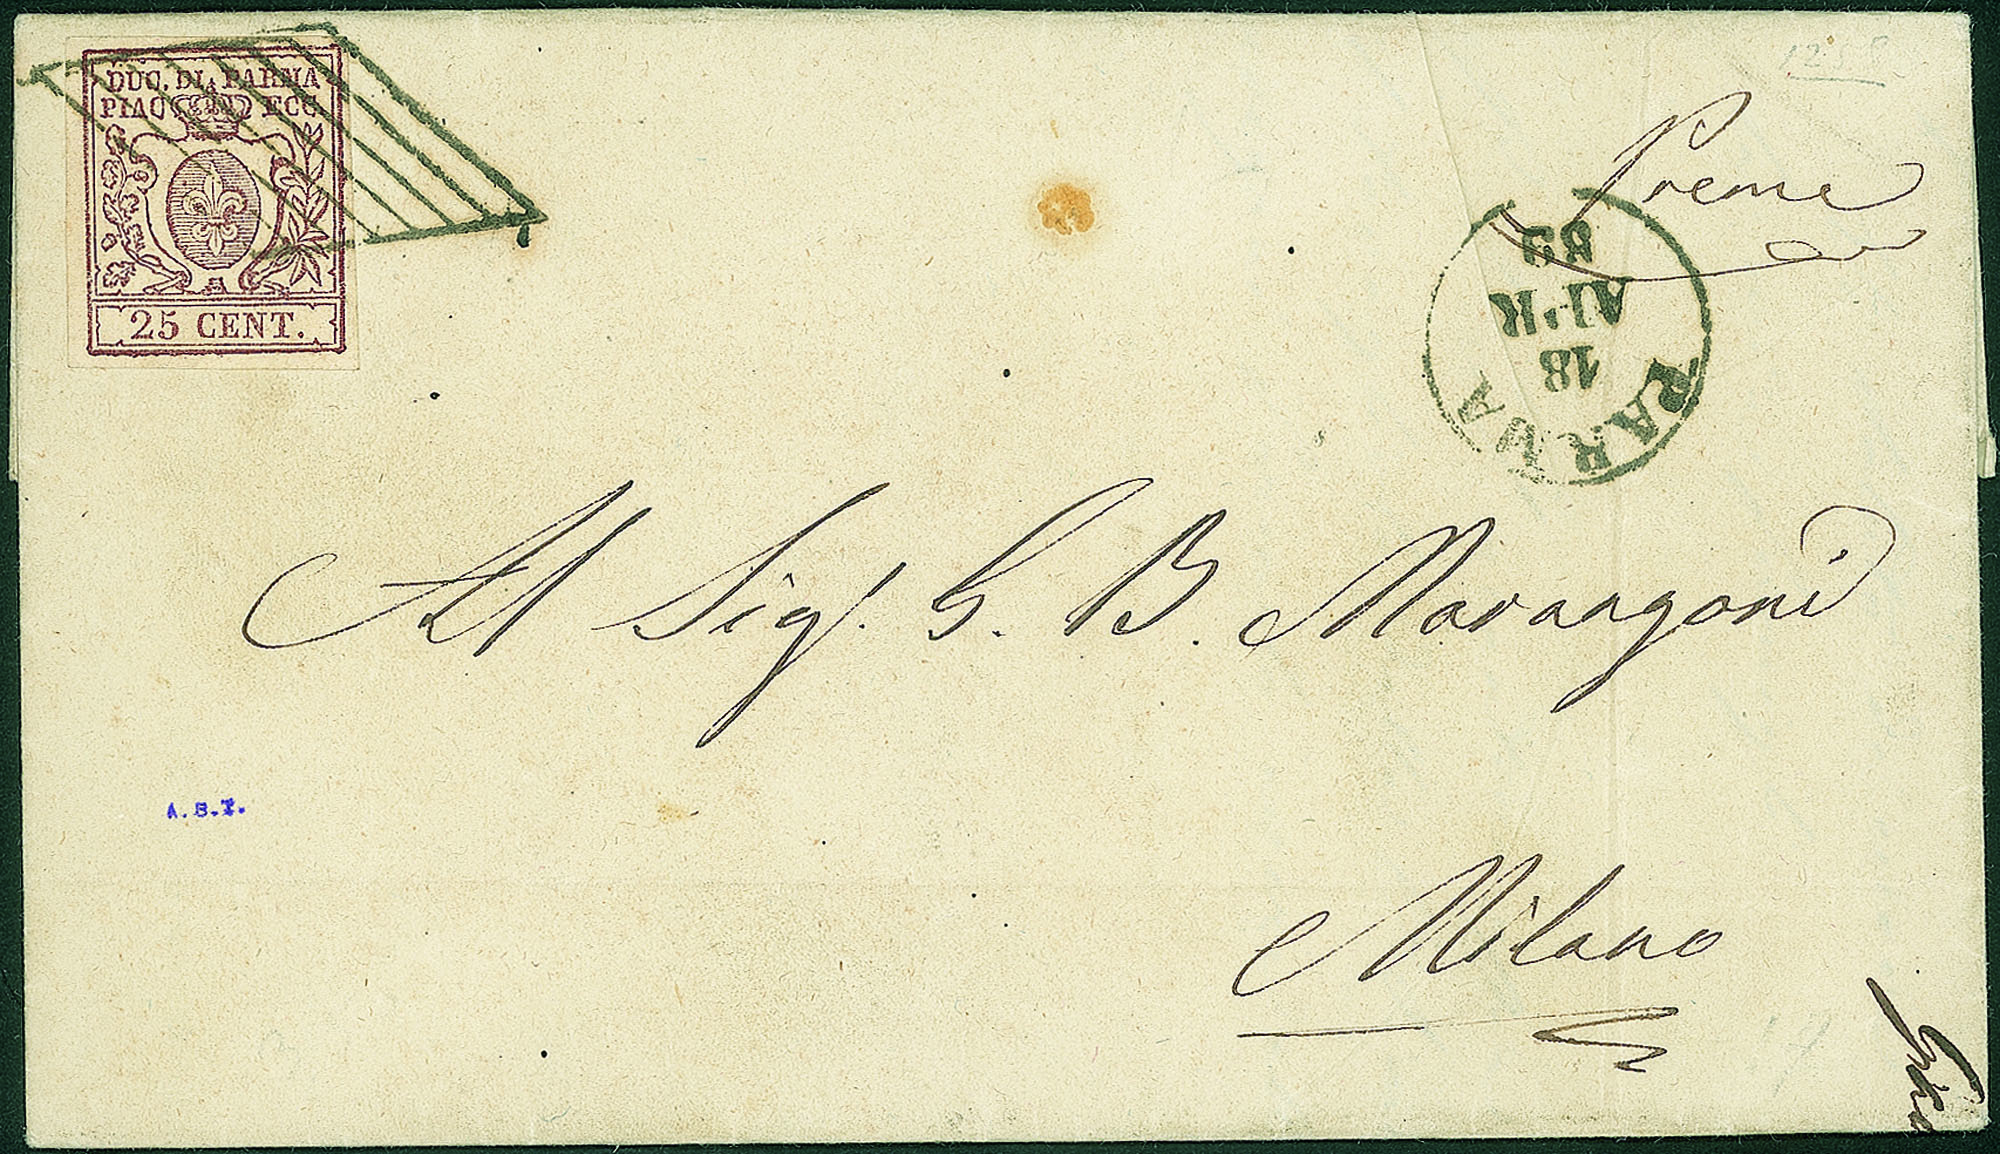 DUC. DI PARMA
PIAC ECC.
25 CENT.
Preme
PARMA
18
APR
59
Al Sigr. G. B. Marangoni
Milano
A. B. T.